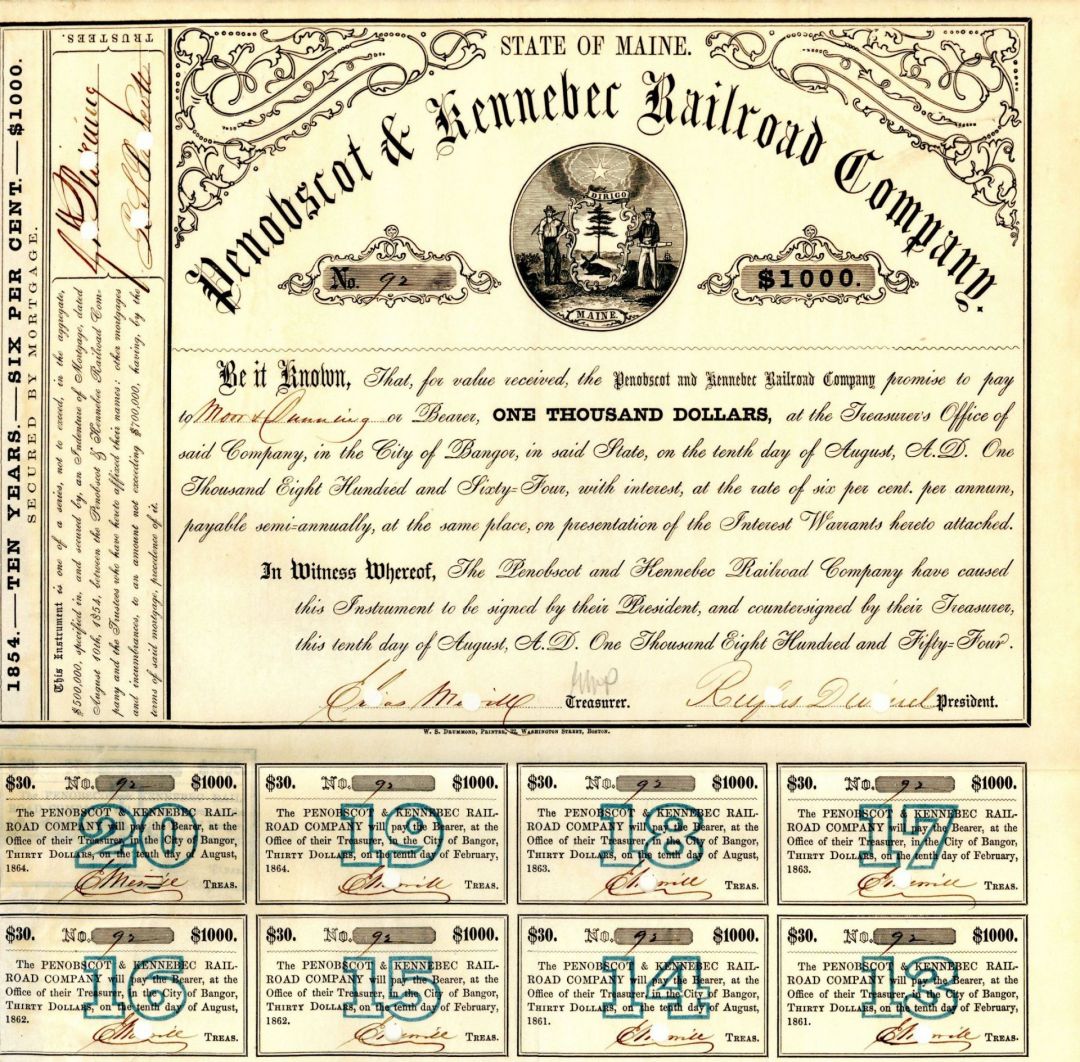 STATE OF MAINE.
Penobscot & Kennebec Railroad Company.
DIRIGO
MAINE.
No. 92
$1000.
Be it Known, That, for value received, the Penobscot and Kennebec Railroad Company promise to pay
to Moor & Dunning or Bearer, ONE THOUSAND DOLLARS, at the Treasurer's Office of
said Company, in the City of Bangor, in said State, on the tenth day of August, A.D. One
Thousand Eight Hundred and Sixty-Four, with interest, at the rate of six per cent. per annum,
payable semi-annually, at the same place, on presentation of the Interest Warrants hereto attached.
In Witness Whereof, The Penobscot and Kennebec Railroad Company have caused
this Instrument to be signed by their President, and countersigned by their Treasurer,
this tenth day of August, A.D. One Thousand Eight Hundred and Fifty-Four.
Treasurer.
President.
W. S. DRUMMOND, PRINTER, WASHINGTON STREET, BOSTON.
1854.—TEN YEARS.—SIX PER CENT.—$1000.
SECURED BY MORTGAGE.
TRUSTEES.
This Instrument is one of a series, not to exceed, in the aggregate,
$500,000, specified in, and secured by, an Indenture of Mortgage, dated
August 10th, 1854, between the Penobscot & Kennebec Railroad Com-
pany and the Trustees who have hereto affixed their names; other mortgages
and incumbrances, to an amount not exceeding $700,000, having, by the
terms of said mortgage, precedence of it.
$30. No. 92 $1000.
20
The PENOBSCOT & KENNEBEC RAIL-
ROAD COMPANY will pay the Bearer, at the
Office of their Treasurer, in the City of Bangor,
THIRTY DOLLARS, on the tenth day of August,
1864.
E Merrill TREAS.
$30. No. 92 $1000.
19
The PENOBSCOT & KENNEBEC RAIL-
ROAD COMPANY will pay the Bearer, at the
Office of their Treasurer, in the City of Bangor,
THIRTY DOLLARS, on the tenth day of February,
1864.
E Merrill TREAS.
$30. No. 92 $1000.
18
The PENOBSCOT & KENNEBEC RAIL-
ROAD COMPANY will pay the Bearer, at the
Office of their Treasurer, in the City of Bangor,
THIRTY DOLLARS, on the tenth day of August,
1863.
E Merrill TREAS.
$30. No. 92 $1000.
17
The PENOBSCOT & KENNEBEC RAIL-
ROAD COMPANY will pay the Bearer, at the
Office of their Treasurer, in the City of Bangor,
THIRTY DOLLARS, on the tenth day of February,
1863.
E Merrill TREAS.
$30. No. 92 $1000.
16
The PENOBSCOT & KENNEBEC RAIL-
ROAD COMPANY will pay the Bearer, at the
Office of their Treasurer, in the City of Bangor,
THIRTY DOLLARS, on the tenth day of August,
1862.
E Merrill TREAS.
$30. No. 92 $1000.
15
The PENOBSCOT & KENNEBEC RAIL-
ROAD COMPANY will pay the Bearer, at the
Office of their Treasurer, in the City of Bangor,
THIRTY DOLLARS, on the tenth day of February,
1862.
E Merrill TREAS.
$30. No. 92 $1000.
14
The PENOBSCOT & KENNEBEC RAIL-
ROAD COMPANY will pay the Bearer, at the
Office of their Treasurer, in the City of Bangor,
THIRTY DOLLARS, on the tenth day of August,
1861.
E Merrill TREAS.
$30. No. 92 $1000.
13
The PENOBSCOT & KENNEBEC RAIL-
ROAD COMPANY will pay the Bearer, at the
Office of their Treasurer, in the City of Bangor,
THIRTY DOLLARS, on the tenth day of February,
1861.
E Merrill TREAS.